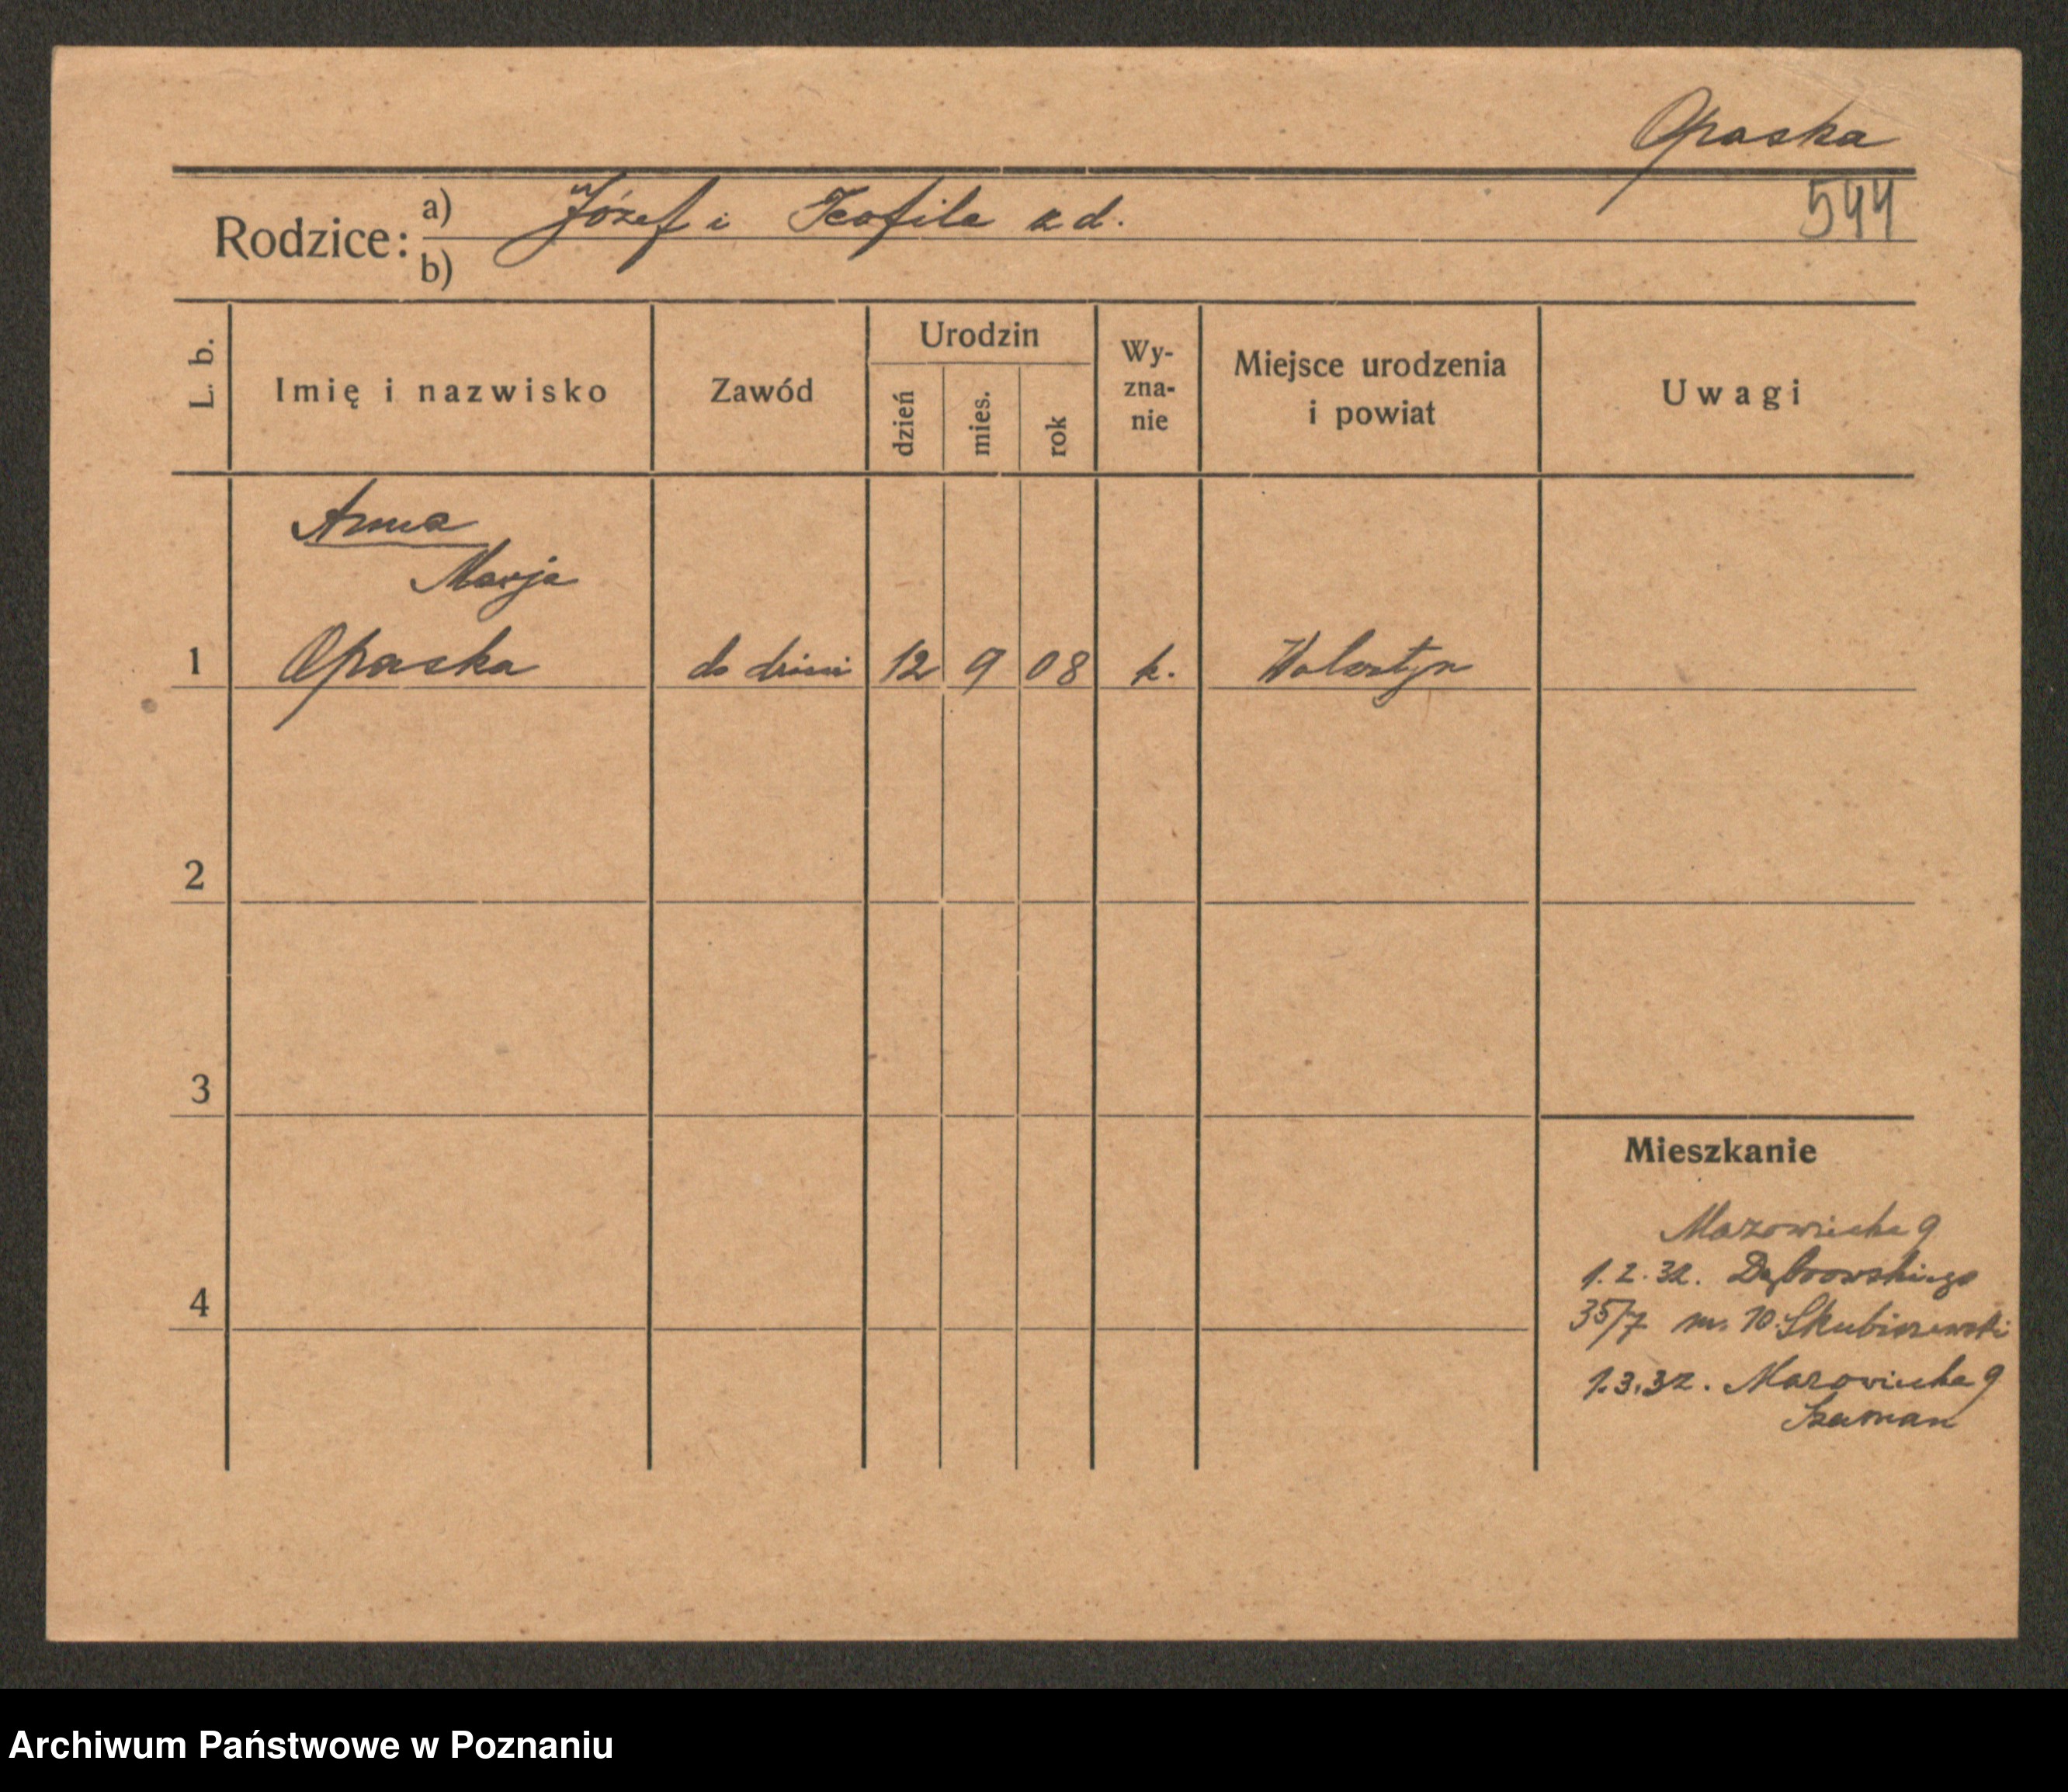 Opaska
544
Rodzice: a) Józef i Teofila z d.
b)
L. b. Imię i nazwisko Zawód Urodzin dzień mies. rok Wy-zna-nie Miejsce urodzenia i powiat Uwagi
Anna
Marja
1 Opaska do dzieci 12 9 08 k. Wolsztyn
2
3
Mieszkanie
Mazowiecka 9
1.2.32. Dąbrowskiego
4
35/7 m. 10 Skubiszewski
1.3.32. Mazowiecka 9
Szaman
Archiwum Państwowe w Poznaniu